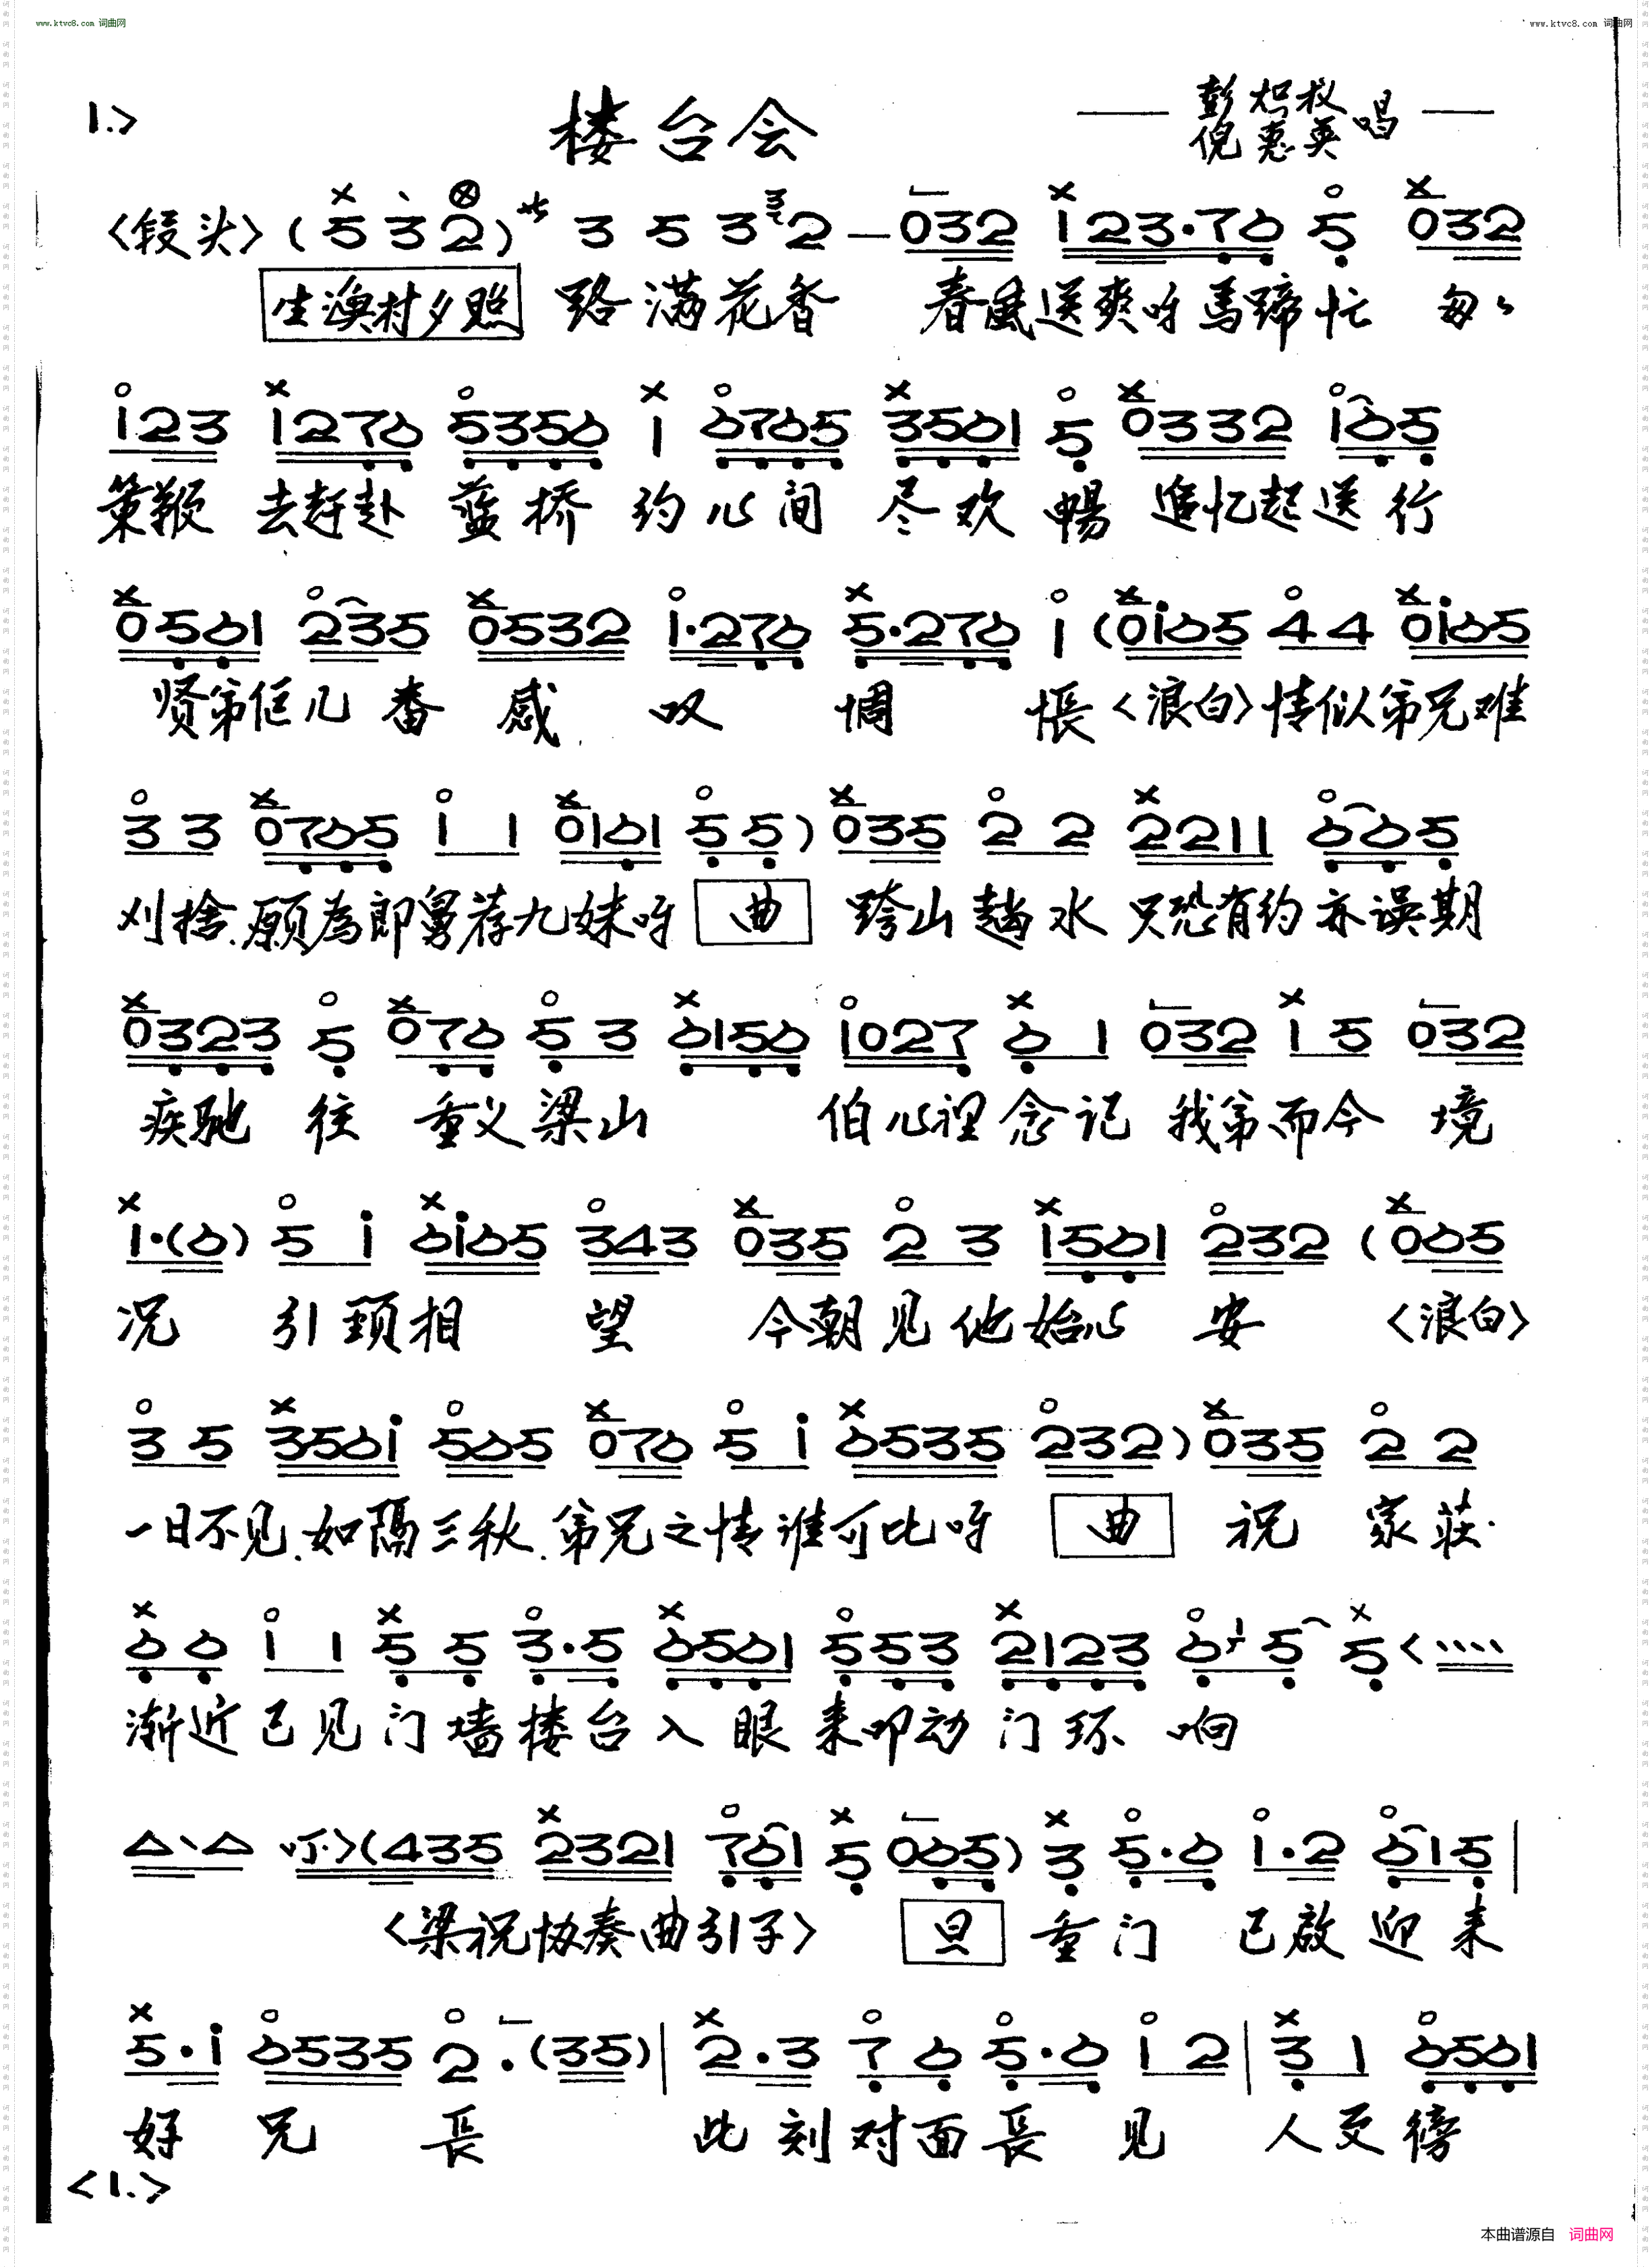 www.ktvc8.com 词曲网
www.ktvc8.com 词曲网
1.>
楼台会
—— 彭炽权 倪惠英 唱 ——
<锓头> (5 3 2) サ 3 5 3 2 — 032 123·76 5 032
生 渔村夕照 路满花香 春风送爽呀馬蹄忙 匆匆
123 1276 5356 1 6765 3561 5 03332 165
策鞭 去赶赴 蓝桥 约心间 尽欢 暢 追忆起送行
0561 235 0532 1·276 5·276 1 (0i65 44 0i65
贤弟佢几番 感 叹 惆 悵 <浪白> 情似弟兄难
33 0765 1 1 0161 55) 035 2 2 2211 665
刈捨.願為郎舅荐九妹呀 曲 跨山趟水 只恐有约亦误期
0323 5 076 5 3 6156 1027 6 1 032 1 5 032
疾馳 往 重义梁山 伯心裡念记 我弟而今 境
1·(6) 5 i 6i65 343 035 2 3 1561 232 (065
况 引頚相 望 今朝见他始心 安 <浪白>
3 5 356i 565 076 5 i 6535 232) 035 2 2
一日不见.如隔三秋.弟兄之情谁可比呀 曲 祝 家莊·
6 6 1 1 5 5 3·5 6561 553 2123 6 5 5 <
渐近已见门墙楼台入眼来叩动门环 响
(435 2321 761 5 065) 3 5·6 1·2 615 |
<梁祝协奏曲引子> 旦 重门 已啟迎来
5·i 6535 2·(35) | 2·3 7 6 5·6 1 2 | 3 1 6561
好 兄 長 此刻对面長见 人更徬
<1.>
本曲谱源自 词曲网